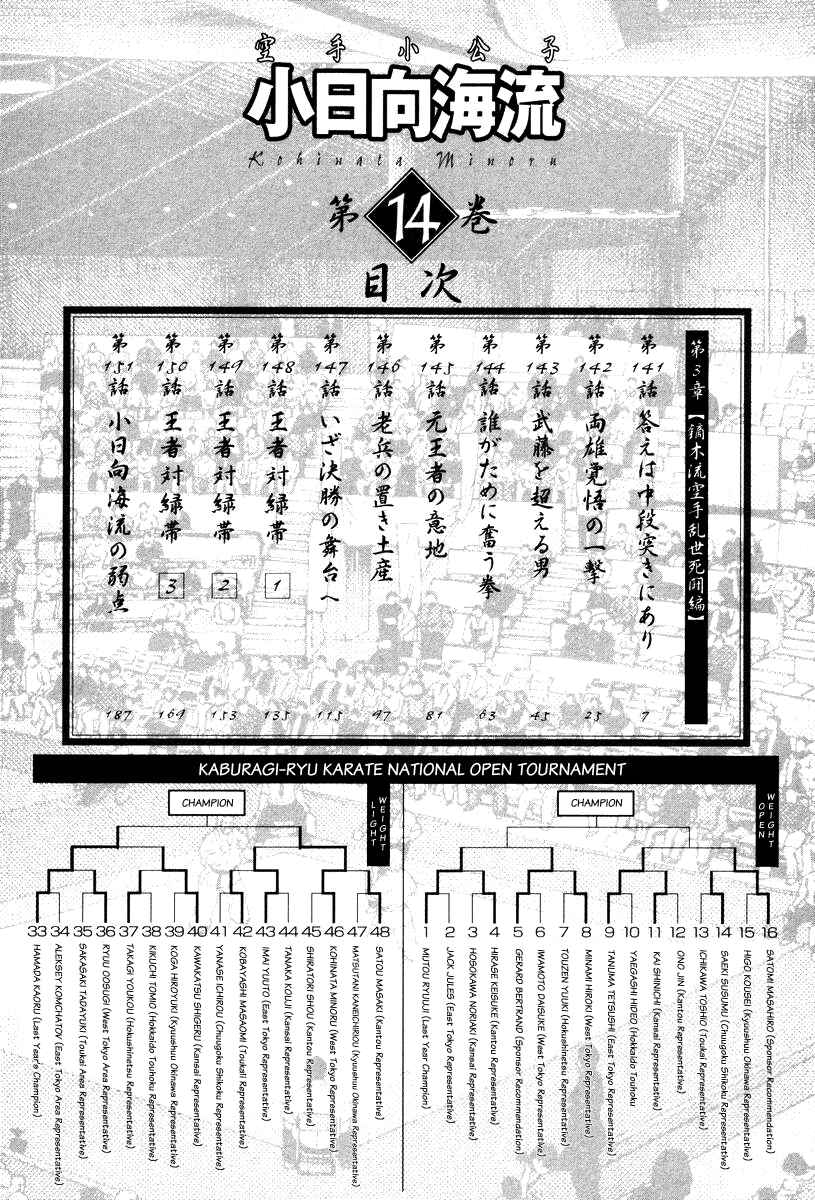 空手小公子
小日向海流
Kohinata Minoru
第14巻
目次
第3章【鏑木流空手乱世死闘編】
第141話 答えは中段突きにあり 7
第142話 両雄覚悟の一撃 25
第143話 武藤を超える男 45
第144話 誰がために奮う拳 63
第145話 元王者の意地 81
第146話 老兵の置き土産 97
第147話 いざ決勝の舞台へ 115
第148話 王者対緑帯 1 135
第149話 王者対緑帯 2 153
第150話 王者対緑帯 3 169
第151話 小日向海流の弱点 187
KABURAGI-RYU KARATE NATIONAL OPEN TOURNAMENT
CHAMPION
LIGHT WEIGHT
33 HAMADA KAORU (Last Year's Champion)
34 ALEKSEY KONCHATOV (East Tokyo Area Representative)
35 SAKASAKI TADAYUKI (Toukai Area Representative)
36 RYUU OOSUGI (West Tokyo Area Representative)
37 TAKAGI YOUKOU (Hokushinetsu Representative)
38 KIKUCHI TOMIO (Hokkaido Touhoku Representative)
39 KOGA HIROYUKI (Kyuushuu Okinawa Representative)
40 KAWAKATSU SHIGERU (Kansai Representative)
41 YANASE ICHIROU (Chuugoku Shikoku Representative)
42 KOBAYASHI MASAOMI (Toukai Representative)
43 IMAI YUUTO (East Tokyo Representative)
44 TANAKA KOUJI (Kansai Representative)
45 SHIRATORI SHOU (Kantou Representative)
46 KOHINATA MINORU (West Tokyo Representative)
47 MATSUTANI KANEICHIROU (Kyuushuu Okinawa Representative)
48 SATOU MASAKI (Kantou Representative)
CHAMPION
OPEN WEIGHT
1 MUTOU RYUUJI (Last Year Champion)
2 JACK JULES (East Tokyo Representative)
3 HOSOKAWA NORIAKI (Kansai Representative)
4 HIRASE KEISUKE (Kantou Representative)
5 GERARD BERTRAND (Sponsor Recommendation)
6 IWAMOTO DAISUKE (West Tokyo Representative)
7 TOUZEN YUUKI (Hokushinetsu Representative)
8 MINAMI HIROKI (West Tokyo Representative)
9 TANUMA TETSUSHI (East Tokyo Representative)
10 YAEGASHI HIDEO (Hokkaido Touhoku
11 KAI SHINICHI (Kansai Representative)
12 ONO JIN (Kantou Representative)
13 ICHIKAWA TOSHIO (Toukai Representative)
14 SAEKI SUSUMU (Chuugoku Shikoku Representative)
15 HIGO KOUSEI (Kyuushuu Okinawa Representative)
16 SATOMI MASAHIRO (Sponsor Recommendation)